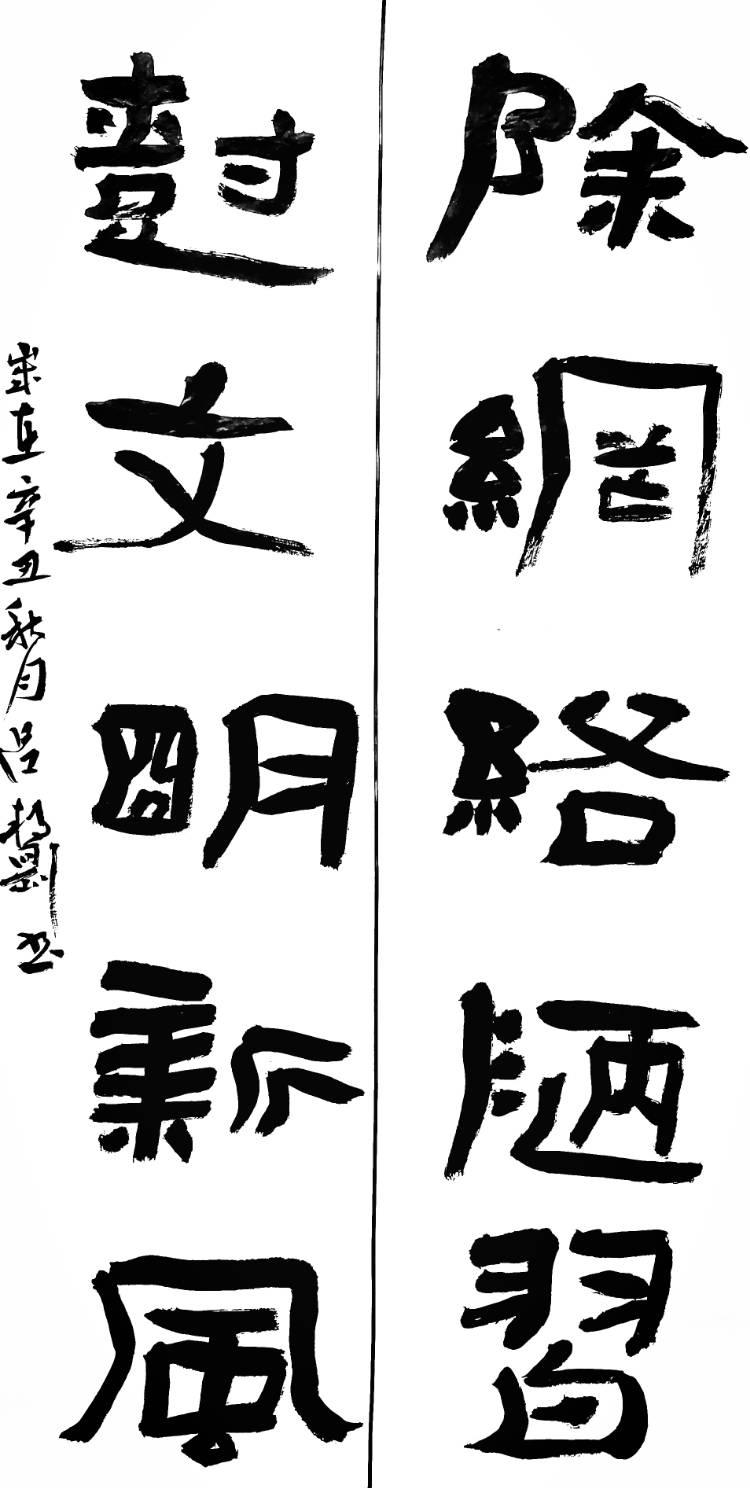 除網絡陋習
樹文明新風
歲在辛丑秋月呂 書